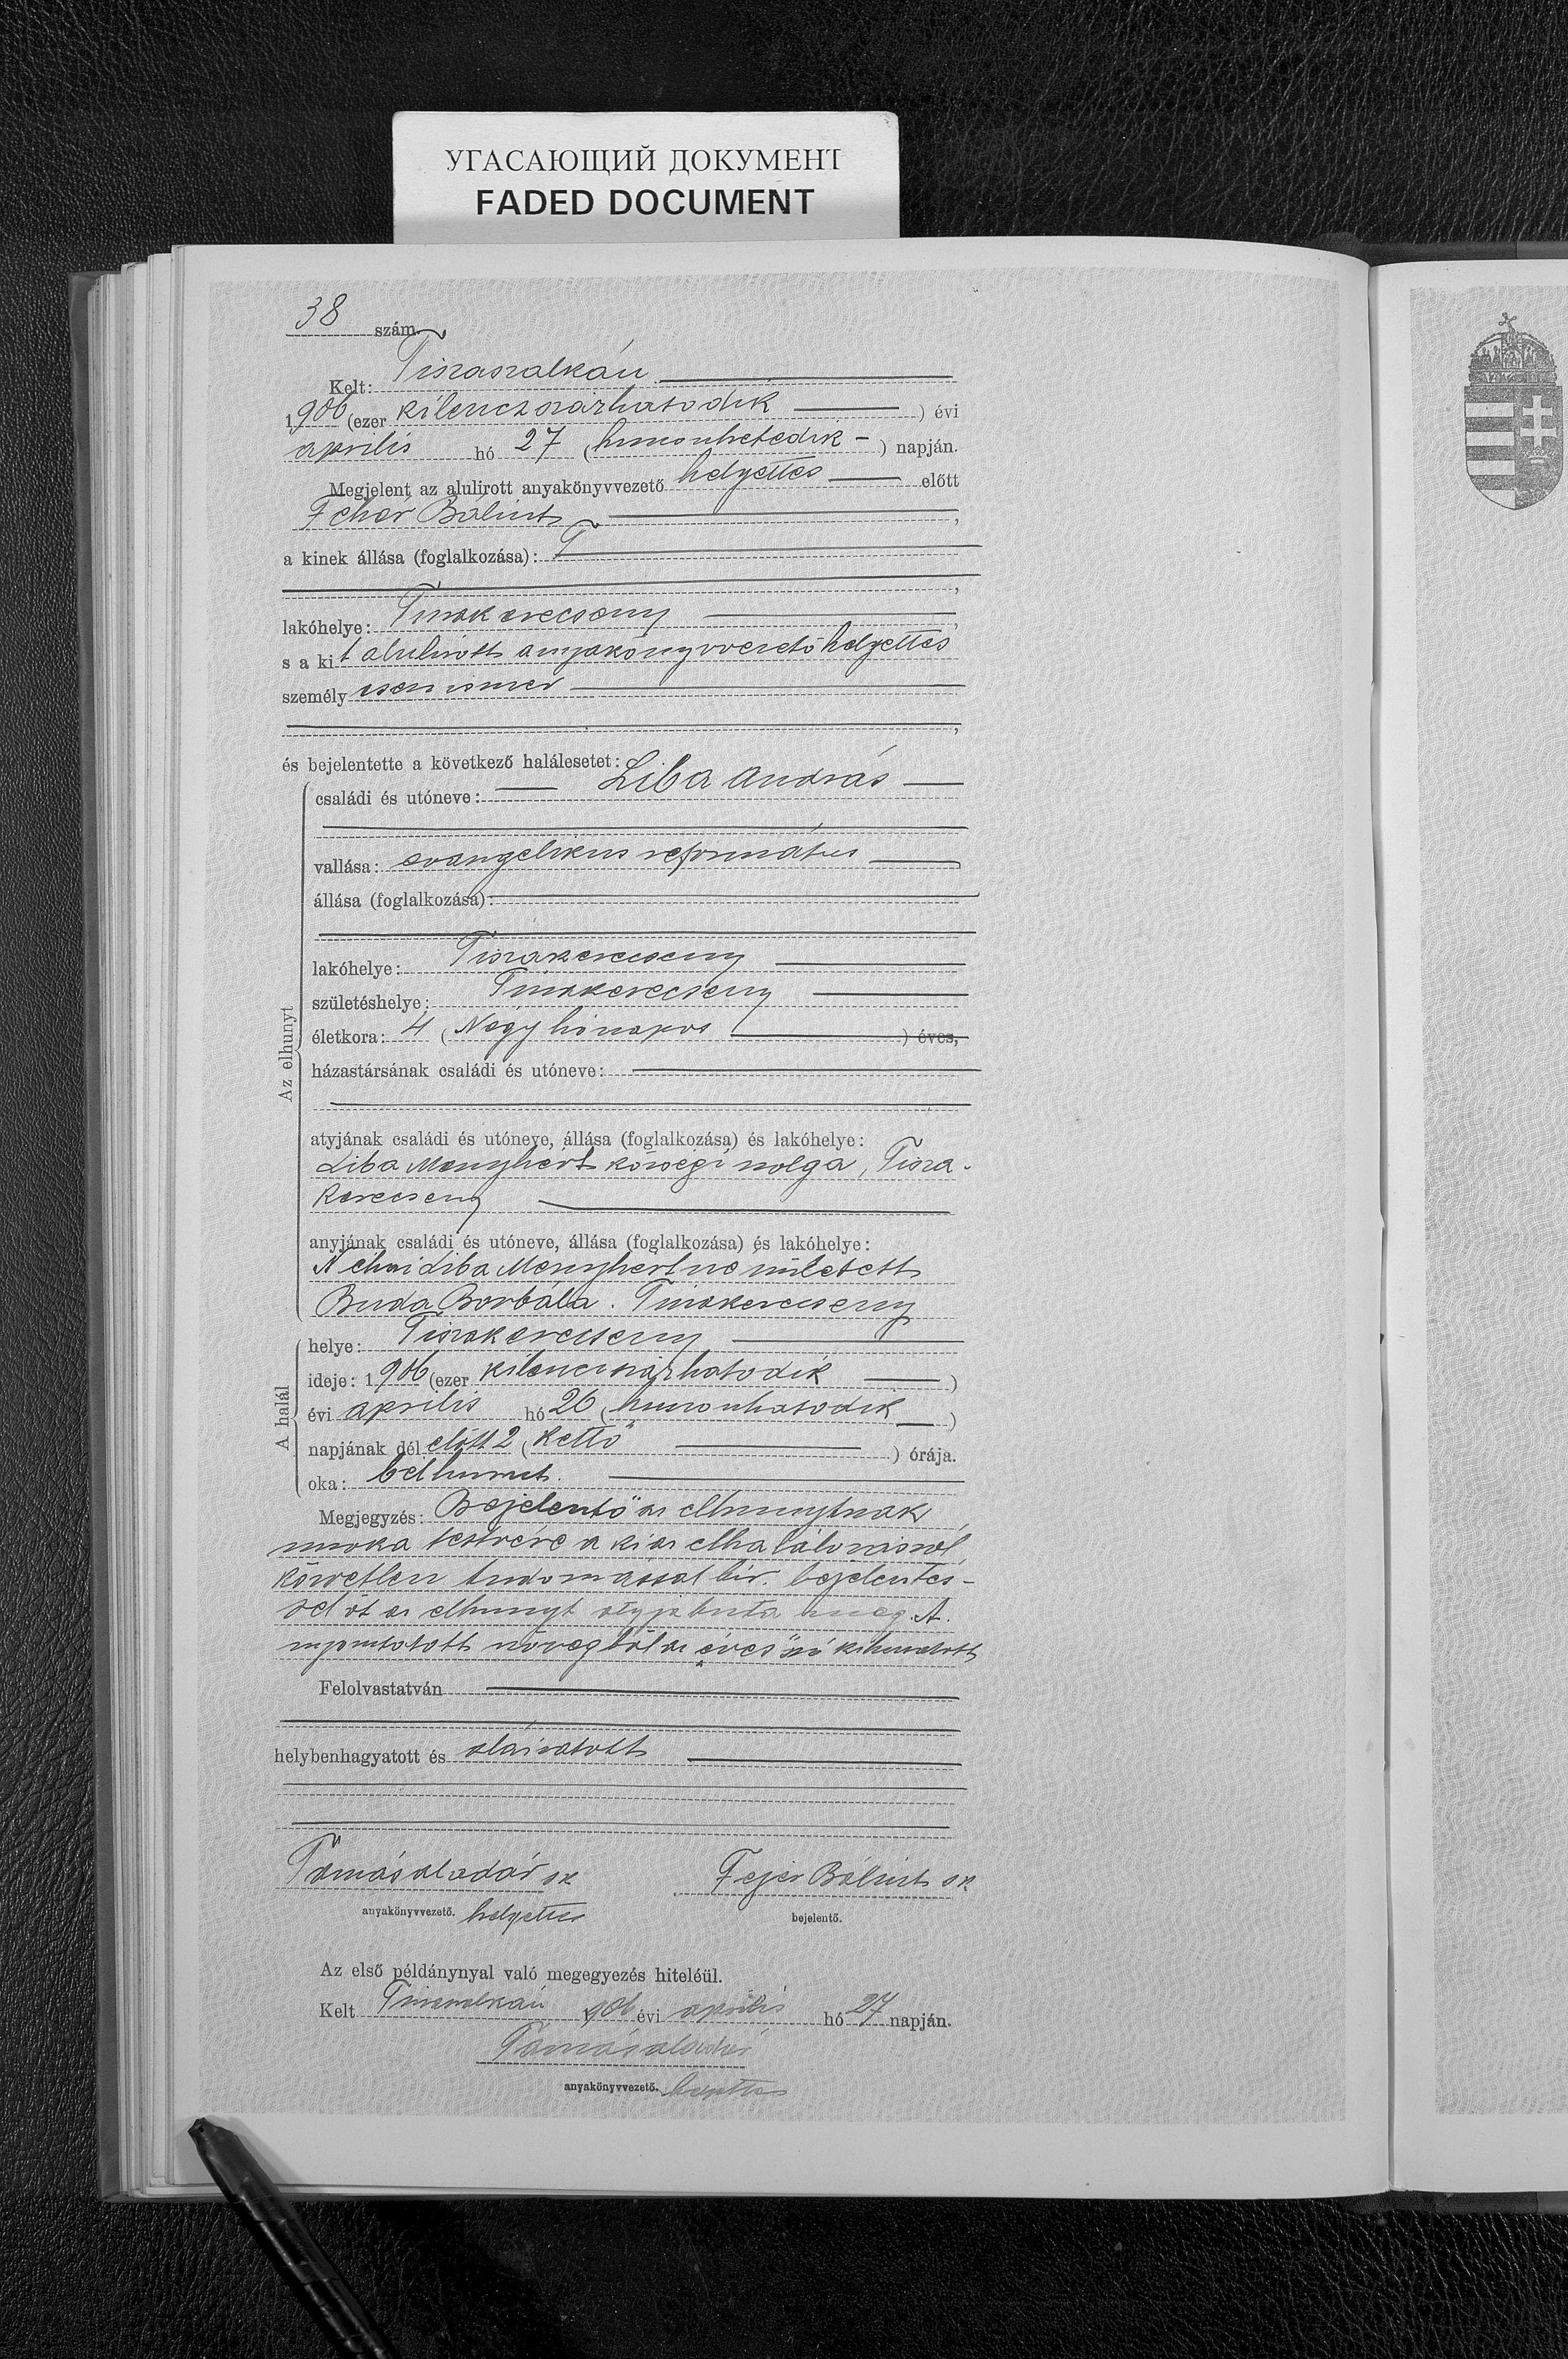 УГАСАЮЩИЙ ДОКУМЕНТ
FADED DOCUMENT
38 szám.
Kelt: Tiszaszalkán
1906 (ezer kilenczszázhatodik ) évi
április hó 27 (huszonhetedik ) napján.
Megjelent az alulirott anyakönyvvezető helyettes előtt
Fehér Bálint,
a kinek állása (foglalkozása):
lakóhelye: Tiszakerecseny,
s a kit alulirott anyakönyvvezető helyettes
személyesen ismer,
és bejelentette a következő halálesetet:
Az elhunyt
családi és utóneve: Liba András
vallása: evangelikus református
állása (foglalkozása):
lakóhelye: Tiszakerecseny
születéshelye: Tiszakerecseny
életkora: 4 (Négy hónapos ) éves,
házastársának családi és utóneve:
atyjának családi és utóneve, állása (foglalkozása) és lakóhelye:
Liba Menyhért községi szolga, Tisza-
kerecseny
anyjának családi és utóneve, állása (foglalkozása) és lakóhelye:
Néhai Liba Menyhértné született
Buda Borbála. Tiszakerecseny
A halál
helye: Tiszakerecseny
ideje: 1906 (ezer kilenczszázhatodik )
évi április hó 26 (huszonhatodik )
napjának dél előtt 2 (kettő ) órája.
oka: bélhurut.
Megjegyzés: Bejelentő az elhunytnak
unoka testvére a ki az elhalálozásról
közvetlen tudomással bír. bejelentés-
sel őt az elhunyt atyja bízta meg. A
nyomtatott szövegből az "éves" szó kihuzatott
Felolvastatván
helybenhagyatott és aláiratott
Tamás Aladár sk Fejér Bálint sk
anyakönyvvezető. helyettes bejelentő.
Az első példánynyal való megegyezés hiteléül.
Kelt Tiszaszalkán 1906 évi április hó 27 napján.
Tamás Aladár
anyakönyvvezető. helyettes